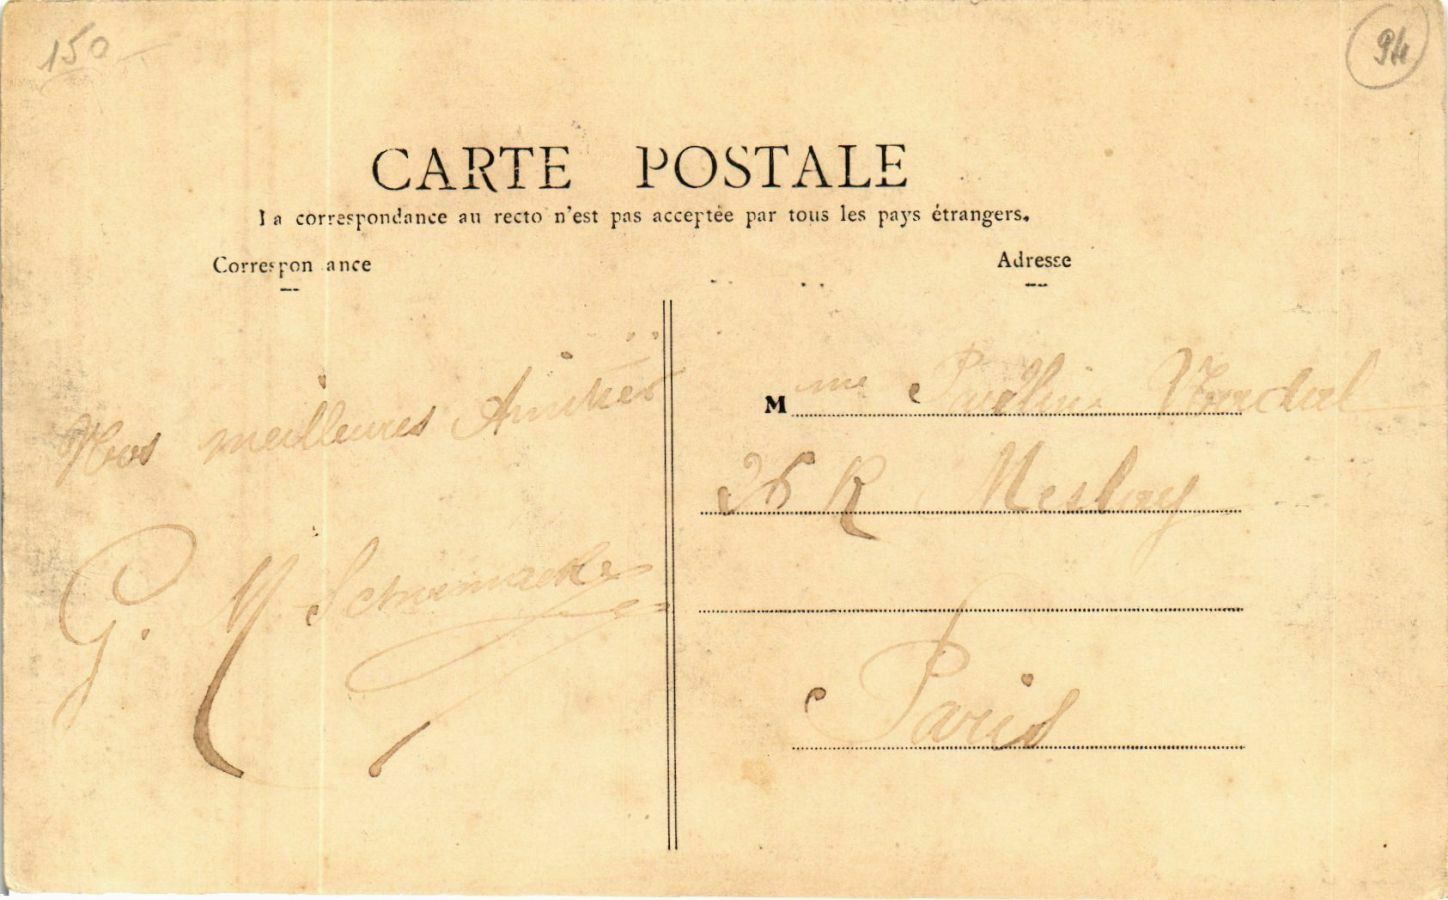 150
94
CARTE POSTALE
La correspondance au recto n'est pas acceptée par tous les pays étrangers.
Correspon ance
Adresse
Nos meilleures Amitiés
G. M Schumacker
Mme Pauline
26 R Meslay
Paris